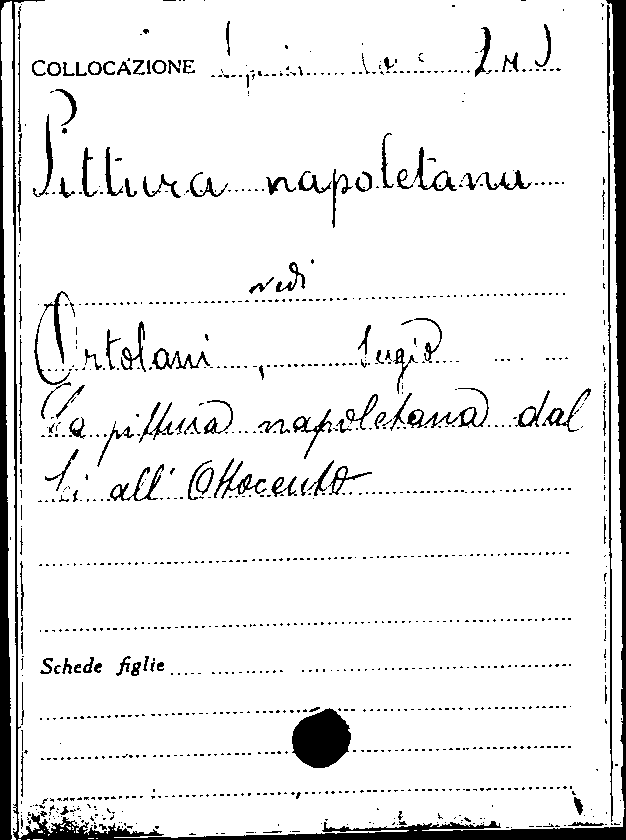 COLLOCAZIONE
Pittura napoletana
vedi
Ortolani, Sergio
La pittura napoletana dal
Sei all' Ottocento
Schede figlie